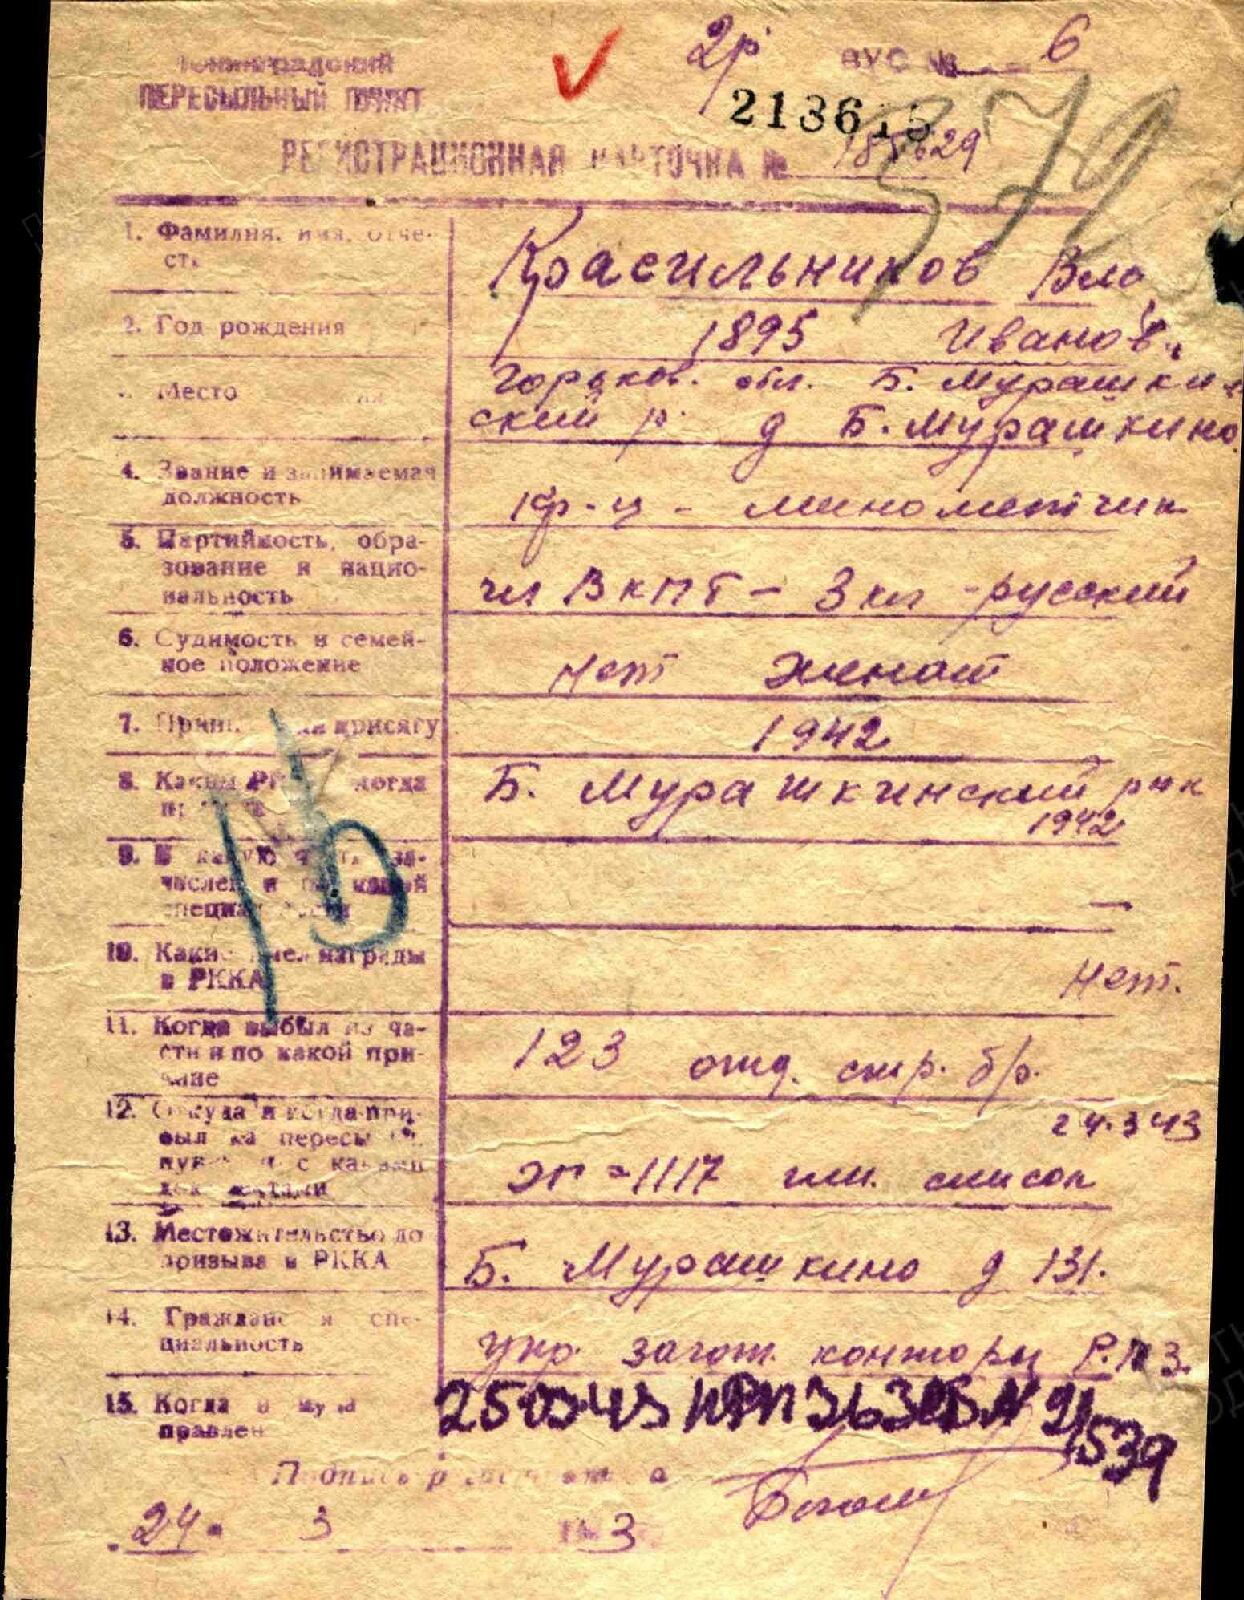 Ленинградский 2р ВУС № 6
ПЕРЕСЫЛЬНЫЙ ПУНКТ 213615 379
РЕГИСТРАЦИОННАЯ КАРТОЧКА № 185629
1. Фамилия, имя, отче- Красильников Вла
ств
2. Год рождения 1895 Иванов.
Место Горьков. обл. Б. Мурашкин-
ский р. д Б. Мурашкино
4. Звание и занимаемая
должность кр-ц - минометчик
5. Партийность, обра-
зование и нацио-
нальность чл ВКПб - 3 кл - русский
6. Судимость и семей-
ное положение Нет Женат
7. Прин. ли присягу 1942
8. Каким РВК когда Б. Мурашкинский рвк
1942
9. В какую ча за-
числен и по какой
специальности —
10. Какие имел награды
в РККА Нет.
11. Когда выбыл из ча-
сти и по какой при-
чине 123 отд. стр. бр.
12. Откуда и когда при- 24.3 43
был на пересы
пункт и с какими
документами эг-1117 им. список
13. Местожительство до
призыва в РККА Б. Мурашкино д 131.
14. Гражданс я спе-
циальность упр. загот. конторы
15. Когда и куда 25 03 43
правлен 539
Подпись
24. 3 43